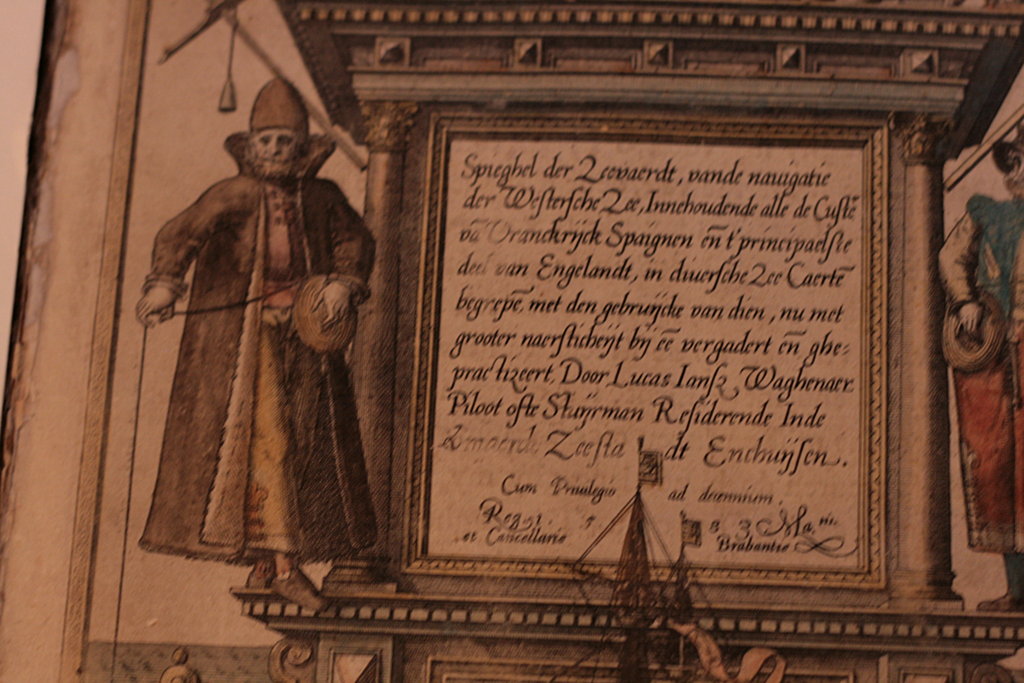 Spieghel der Zeevaerdt, vande nauigatie
der Westersche Zee, Innehoudende alle de Custē
vā Vranckrijck Spaignen eñ t'principaelste
deel van Engelandt, in diuersche Zee Caertē
begrepē, met den gebruijcke van dien, nu met
grooter naersticheijt bij eē vergadert eñ ghe=
practizeert, Door Lucas Iansz Waghenaer
Piloot ofte Stuijrman Residerende Inde
Zeestadt Enchuijsen.
Cum Priuilegio ad decennium.
Reg. Ma.
et Cancellarie Brabantie